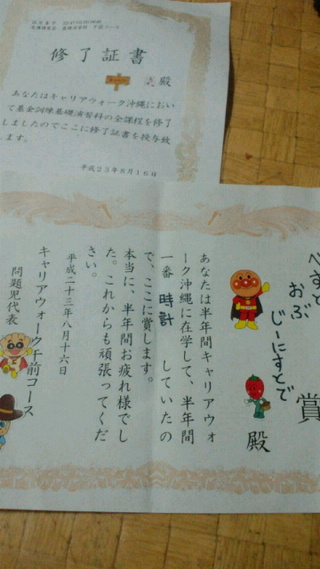 修了証書
殿
あなたはキャリアウォーク沖縄におい
て基金訓練基礎演習科の全課程を修了
しましたのでここに修了証書を授与致
します。
平成23年8月16日
べすと
おぶ
じーにすとで
賞
殿
あなたは半年間キャリアウォ
ーク沖縄に在学して、半年間
一番 時計 していたの
で、ここに賞します。
本当に、半年間お疲れ様でし
た。これからも頑張ってくだ
さい。
平成二十三年八月十六日
キャリアウォーク午前コース
問題児代表